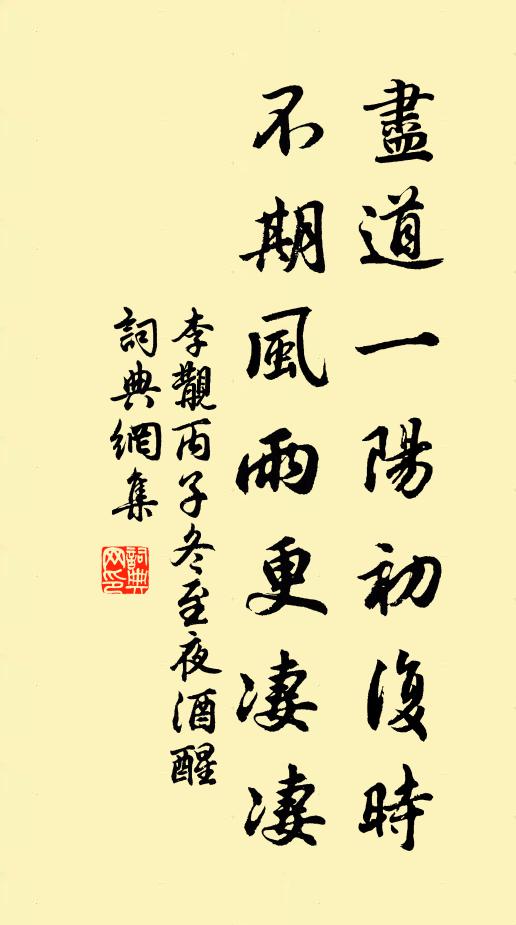 盡道一陽初復時
不期風雨更凄凄
李覯丙子冬至夜酒醒
詞典網集
詞典
网印